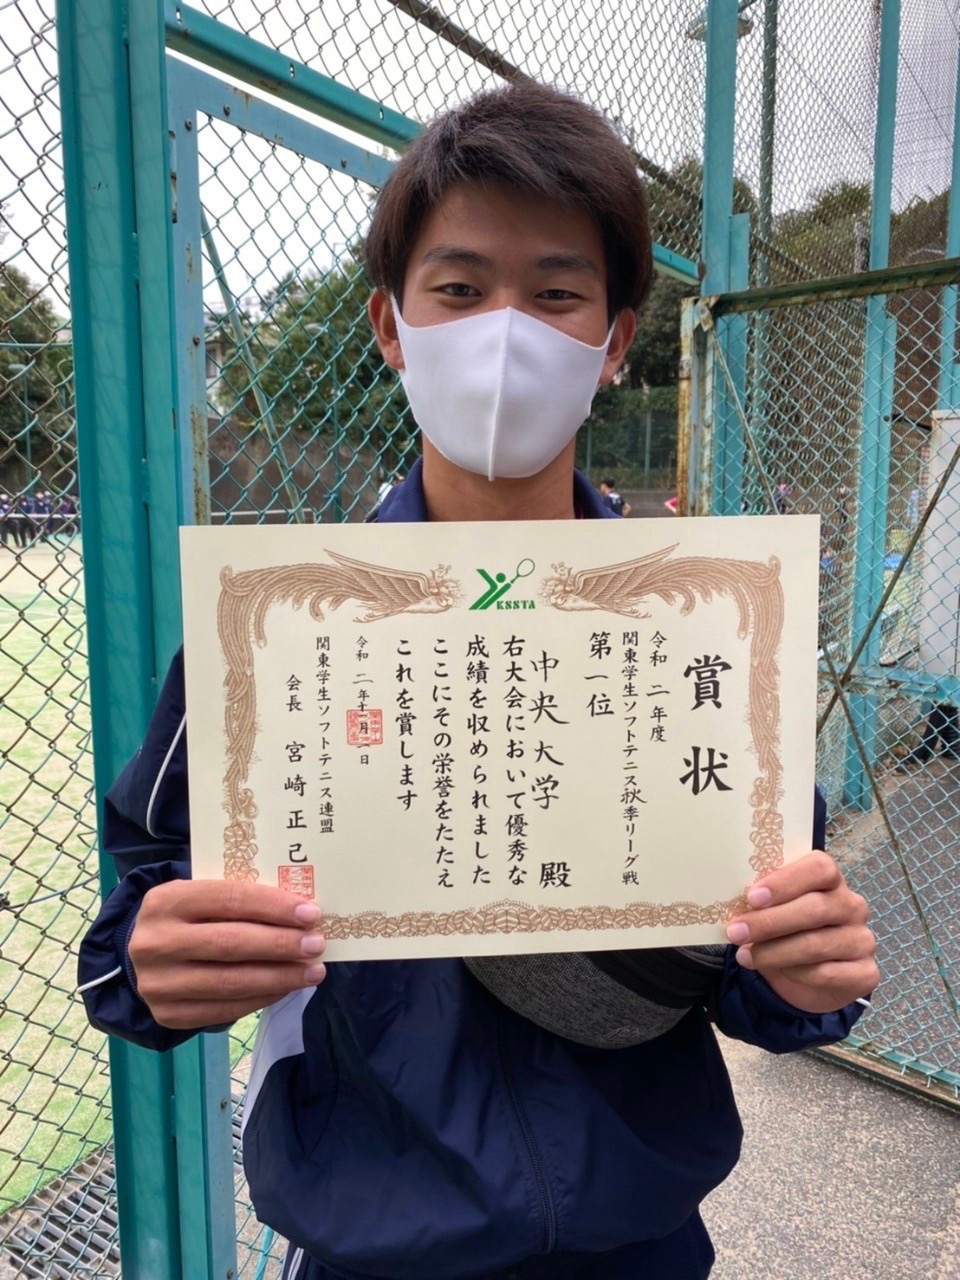 KSSTA
賞状
令和二年度
関東学生ソフトテニス秋季リーグ戦
第一位
中央大学 殿
右大会において優秀な
成績を収められました
ここにその栄誉をたたえ
これを賞します
関東学生ソフトテニス連盟
会長 宮崎正己